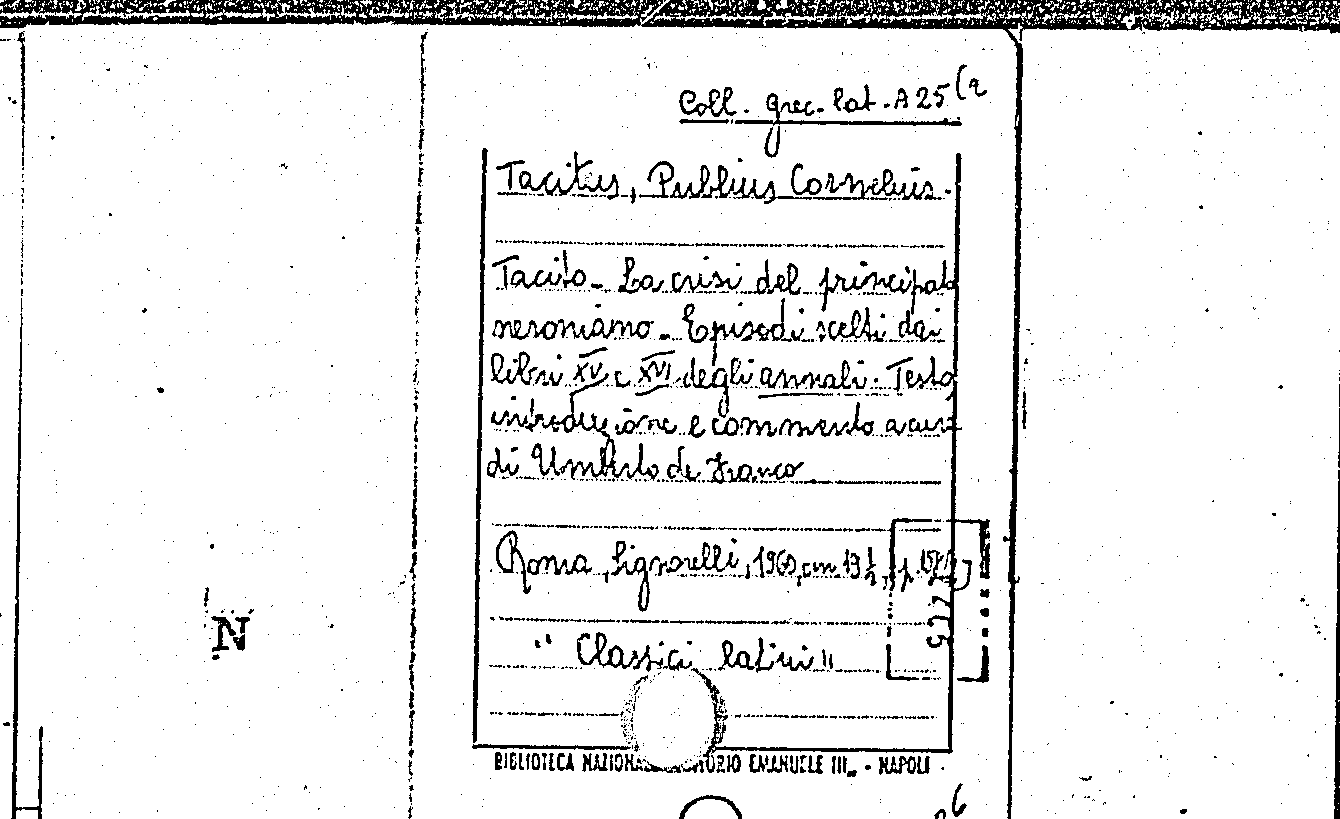 Coll. grec. lat. A 25 (2
Tacitus, Publius Cornelius.
Tacito_ La crisi del principato
neroniano_ Episodi scelti dai
libri XV e XVI degli annali. Testo
introduzione e commento a cura
di Umberto de Franco
Roma, Signorelli, 1960, cm. 19 ½, p.
"Classici latini"
BIBLIOTECA NAZIONALE VITTORIO EMANUELE III,, - NAPOLI
N